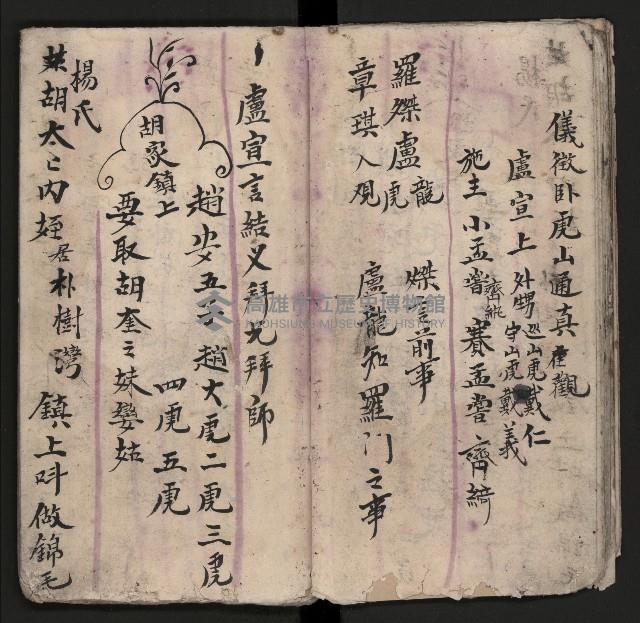 儀徵卧虎山通真在觀
盧宣上 外甥 巡山虎戴仁
守山虎戴義
施主 小孟嘗 齊紈 賽孟嘗 齊綺
羅傑盧龍虎
章琪入观 傑言前事
盧龍知羅门之事
盧宣言結义拜兄拜師
趙安五子 趙大虎二虎三虎
四虎五虎
胡家鎮上
要取胡奎之妹鸞姑
楊氏
胡太〻内姪居朴樹灣 鎮上叫做錦毛
高雄市立歷史博物館
KAOHSIUNG MUSEUM OF HISTORY